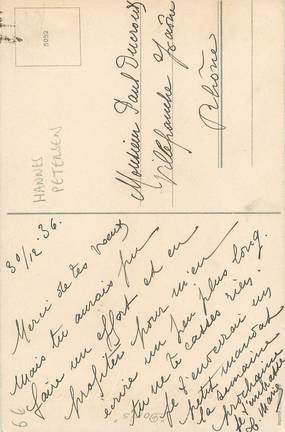 5052
HANNES
PETERSEN
Monsieur Paul Ducroux
Villefranche s/Saône
Rhône
30/12.36.
Merci de tes voeux
mais tu aurais pu
faire un effort et en
profiter pour m'en
écrire un peu plus long.
tu ne te casses rien.
je t'enverrai un
petit mandat
la semaine
prochaine
Je t'embrasse
Marie
66